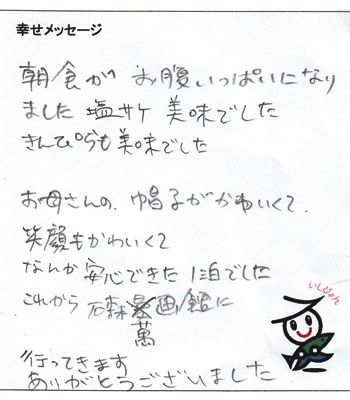 幸せメッセージ
朝食が お腹いっぱいになり
ました 塩サケ 美味でした
きんぴらも美味でした
お母さんの、帽子がかわいくて、
笑顔もかわいくて
なんか安心できた 1泊でした
これから 石森画館に
萬
行ってきます
ありがとうございました
いしぴょん